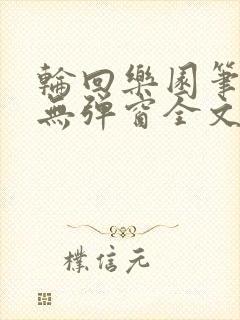 輪回樂園筆
無彈窗全文
樸信元